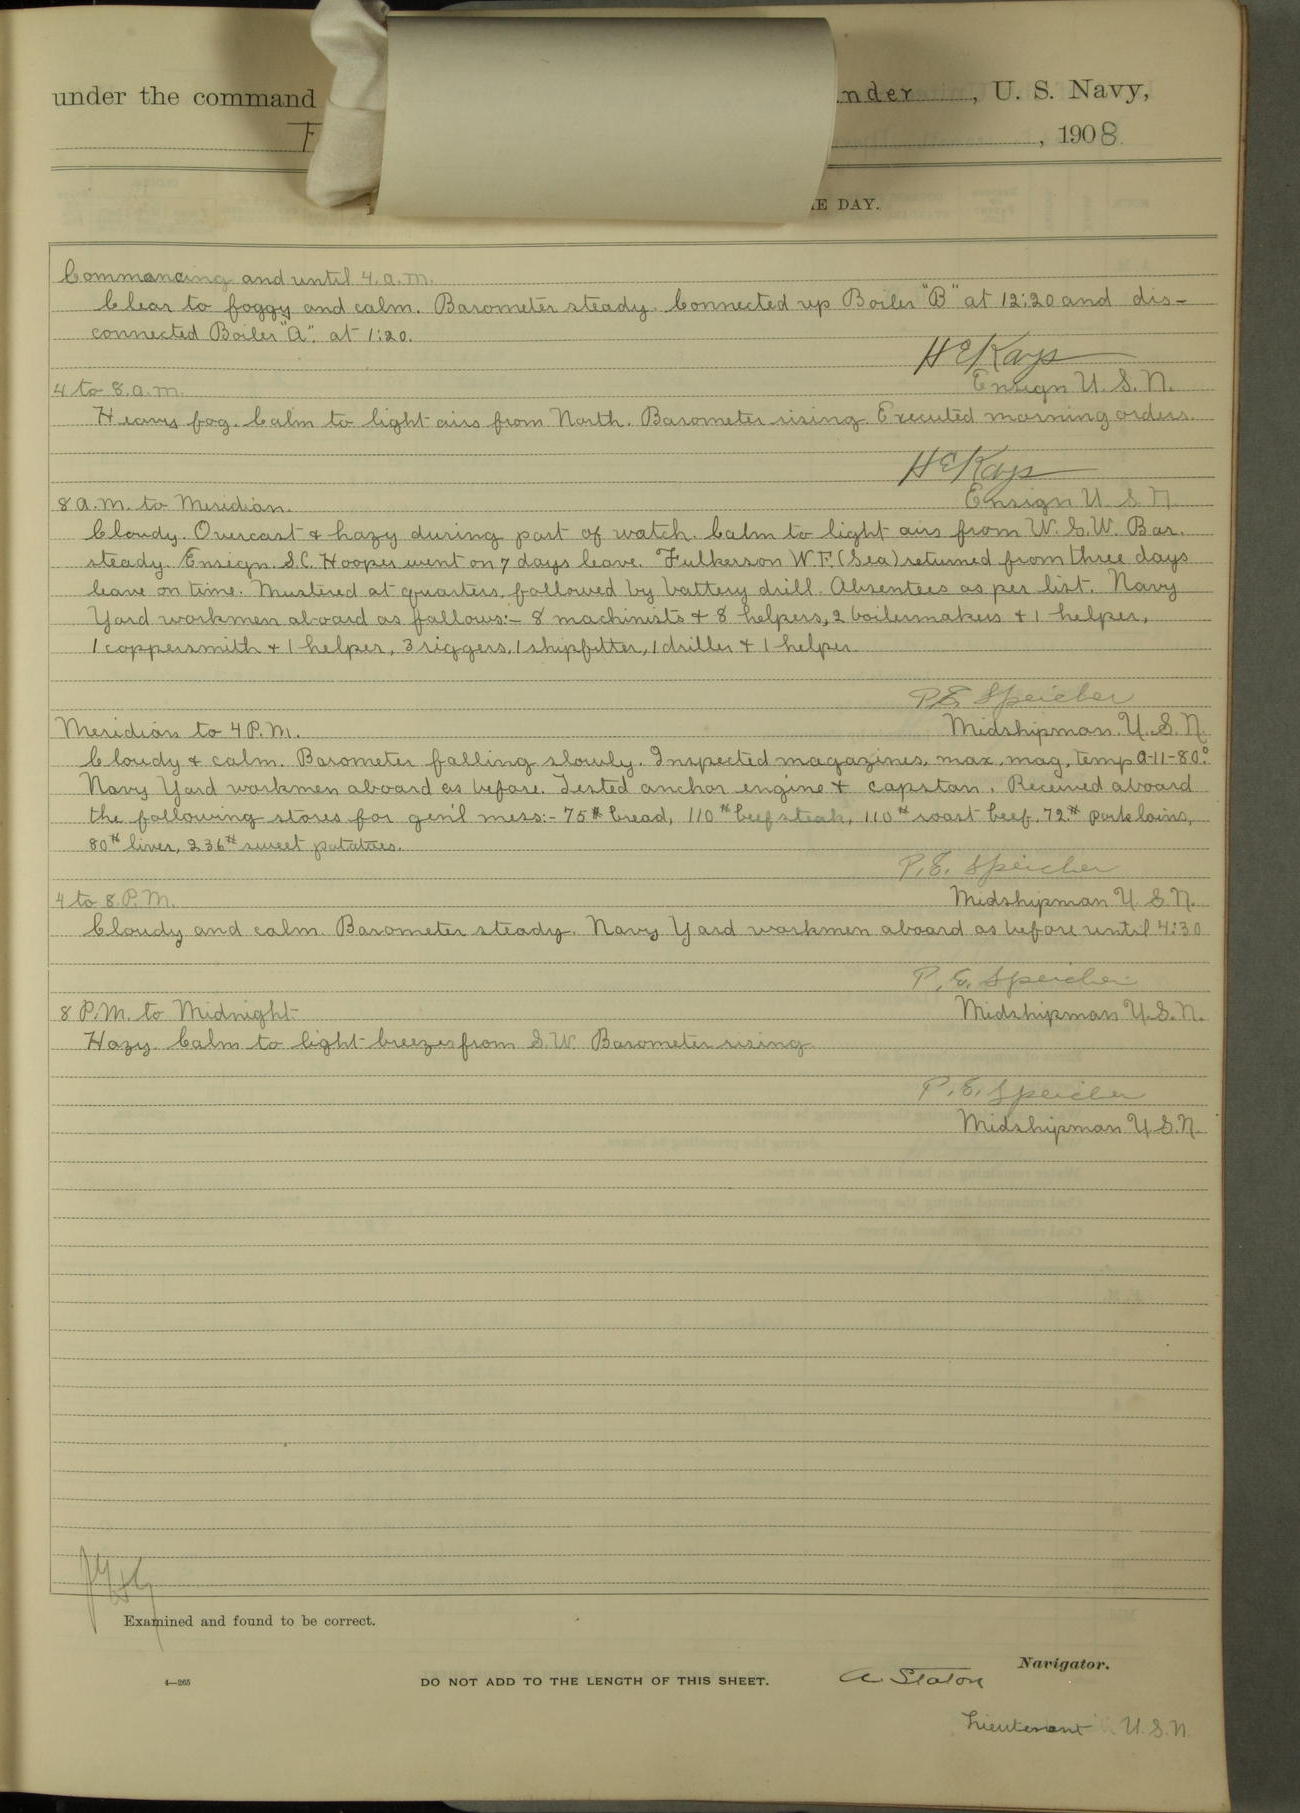 under the command nder, U. S. Navy,
F , 1908.
E DAY.
Commencing and until 4. a.m.
Clear to foggy and calm. Barometer steady. Connected up Boiler "B" at 12:20 and dis-
connected Boiler "A". at 1:20.
H E Kays
Ensign U. S. N.
4 to 8. a.m.
Heavy fog. Calm to light airs from North. Barometer rising. Executed morning orders.
H E Kays
Ensign U. S. N
8 a.m. to Meridian.
Cloudy. Overcast & hazy during part of watch. Calm to light airs from W. S. W. Bar.
steady. Ensign S.C. Hooper went on 7 days leave. Fulkerson W.F. (Sea) returned from three days
leave on time. Mustered at quarters, followed by battery drill. Absentees as per list. Navy
Yard workmen aboard as follows:- 8 machinists & 8 helpers, 2 boilermakers & 1 helper,
1 coppersmith & 1 helper, 3 riggers, 1 shipfitter, 1 driller & 1 helper.
P.E. Speicher
Meridian to 4 P.M. Midshipman U. S. N.
Cloudy & calm. Barometer falling slowly. Inspected magazines, max. mag. temp A-11-80°.
Navy Yard workmen aboard as before. Tested anchor engine & capstan. Received aboard
the following stores for gen'l mess:- 75# bread, 110# beefsteak, 110# roast beef, 72# pork loins,
80# liver, 236# sweet potatoes.
P. E. Speicher
4 to 8 P.M. Midshipman U. S. N.
Cloudy and calm. Barometer steady. Navy Yard workmen aboard as before until 4:30
P. E. Speicher
8 P.M. to Midnight Midshipman U. S. N.
Hazy. Calm to light breezes from S.W. Barometer rising.
P. E. Speicher
Midshipman U. S. N.
Examined and found to be correct.
Navigator.
4—265 DO NOT ADD TO THE LENGTH OF THIS SHEET. A Staton
Lieutenant U. S. N.